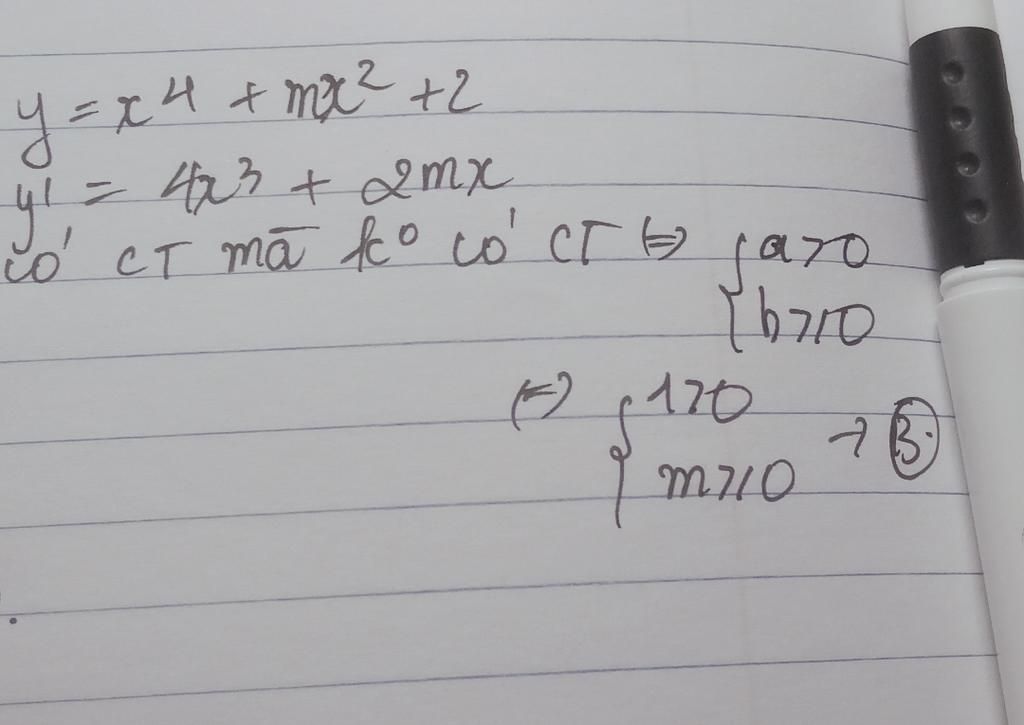 y = x⁴ + mx² + 2
y' = 4x³ + 2mx
có CT mã k° có CT ⇔ { a > 0
b ≥ 0
⇔ { 1 > 0
m ≥ 0 → B.